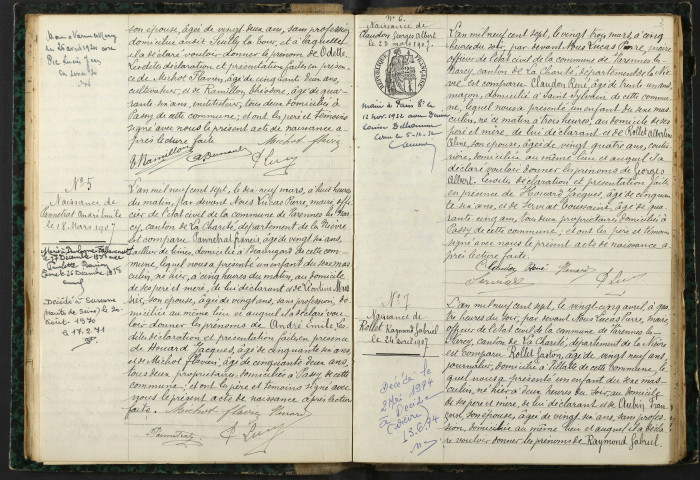 son épouse, âgée de vingt deux ans, sans profession
domiciliée audit Suilly la Tour, et à laquelle il
a déclaré vouloir donner le prénom de Odette
Lesdites déclaration et présentation faites en présen-
ce de Michot Flavien, âgé de cinquante deux ans
cultivateur, et de Ramillon, Théodore, âgé de qua-
rante six ans, instituteur, tous deux domiciliés à
Passy de cette commune, et ont les père et témoins
signé avec nous le présent acte de naissance a-
près lecture faite.
Michot flavien
N° 5
Naissance de
Pannetrat André Emile
le 18 Mars 1907
Décédé à Suresnes
(Hauts de Seine) le 20
Août 1970
le 17.2.71
L'an mil neuf cent sept, le dix neuf mars, à huit heures
du matin, par devant Nous Lucas Pierre, maire, offi-
cier de l'état civil de la commune de Varennes les Nar-
cy, canton de La Charité, département de la Nièvre
est comparu Pannetrat François, âgé de vingt six ans,
tailleur de limes, domicilié à
lequel nous a présenté un enfant du sexe mas-
culin, né hier, à cinq heures du matin, au domicile
de ses père et mère, de lui déclarant et de
son épouse, âgée de vingt ans, sans profession, do-
miciliée au même lieu et auquel il a déclaré vou-
loir donner les prénoms de André Emile, Les
dites déclaration et présentation faites en présence
de Houard Jacques, âgé de cinquante six ans
et de Michot Flavien, âgé de cinquante deux ans,
tous deux propriétaires, domiciliés à Passy de cette
commune, et ont les père et témoins signé avec
nous le présent acte de naissance après lecture
faite.
Michot flavien
Pannetrat
N° 6
Naissance de
Claudon Georges Albert
le 23 mars 1907
Marié à Paris 8e le
12 nov. 1932 avec
L'an mil neuf cent sept, le vingt trois mars, à cinq
heures du soir, par devant Nous Lucas Pierre, maire
officier de l'état civil de la commune de Varennes les
Narcy, canton de La Charité, département de la Niè-
vre est comparu Claudon René, âgé de trente un ans,
maçon, domicilié à Saint Sylvain de cette commu-
ne, lequel nous a présenté un enfant du sexe mas-
culin, né ce matin à trois heures, au domicile de ses
père et mère, de lui déclarant et de Rollet Albertine
son épouse, âgée de vingt quatre ans, coutu-
rière, domiciliée au même lieu et auquel il a
déclaré vouloir donner les prénoms de Georges
Albert. Lesdites déclaration et présentation faites
en présence de Houard Jacques, âgé de cinquan-
te six ans, et de Servais âgé de qua-
rante cinq ans, tous deux propriétaires domiciliés à
Passy de cette commune, et ont les père et témoins
signé avec nous le présent acte de naissance a-
près lecture faite.
Claudon René
Servais
N° 7
Naissance de
Rollet Raymond Gabriel
le 24 avril 1907
Décédé le
2 Mai 1974
à Decize
(Nièvre)
13.6.74
L'an mil neuf cent sept, le vingt cinq avril, à qua-
tre heures du soir, par devant Nous Lucas Pierre, maire,
officier de l'état civil de la commune de Varennes les
Narcy, canton de La Charité, département de la Nièvre
est comparu Rollet Gaston, âgé de vingt neuf ans,
journalier, domicilié à Villate de cette commune, le
quel nous a présenté un enfant du sexe mas-
culin, né hier à deux heures du soir au domicile
de ses père et mère, de lui déclarant et de Aubin
son épouse, âgée de vingt six ans, sans profes-
sion, domiciliée au même lieu et auquel il a décla-
ré vouloir donner les prénoms de Raymond Gabriel.